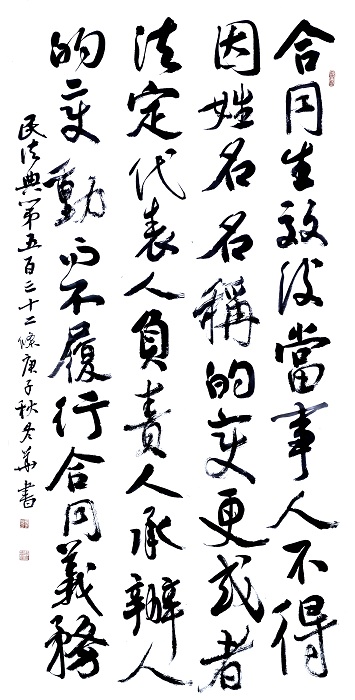 合同生效後當事人不得
因姓名名稱的变更或者
法定代表人負責人承辦人
的变動而不履行合同義務
民法典第五百三十二條庚子秋冬華書